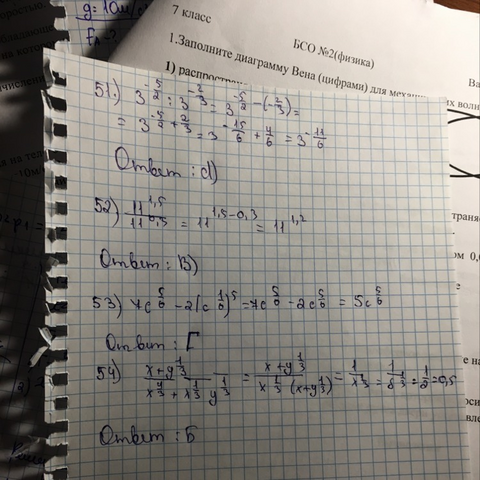 g = 10м/с
7 класс
БСО №2(физика)
1.Заполните диаграмму Вена (цифрами) для механи
1) распростр
51.) 3^{-5/2} : 3^{-2/3} = 3^{-5/2 - (-2/3)} =
= 3^{-5/2 + 2/3} = 3^{-15/6 + 4/6} = 3^{-11/6}
Ответ : d)
52) 11^{1,5} / 11^{0,3} = 11^{1,5-0,3} = 11^{1,2}
Ответ : В)
53) 7c^{5/6} - 2(c^{1/6})^5 = 7c^{5/6} - 2c^{5/6} = 5c^{5/6}
Ответ : Г
54) x+y^{1/3} / x^{4/3} + x^{1/3} y^{1/3} = x+y^{1/3} / x^{1/3} (x+y^{1/3}) = 1/x^{1/3} = 1/8^{1/3} = 1/2 = 0,5
Ответ : Б